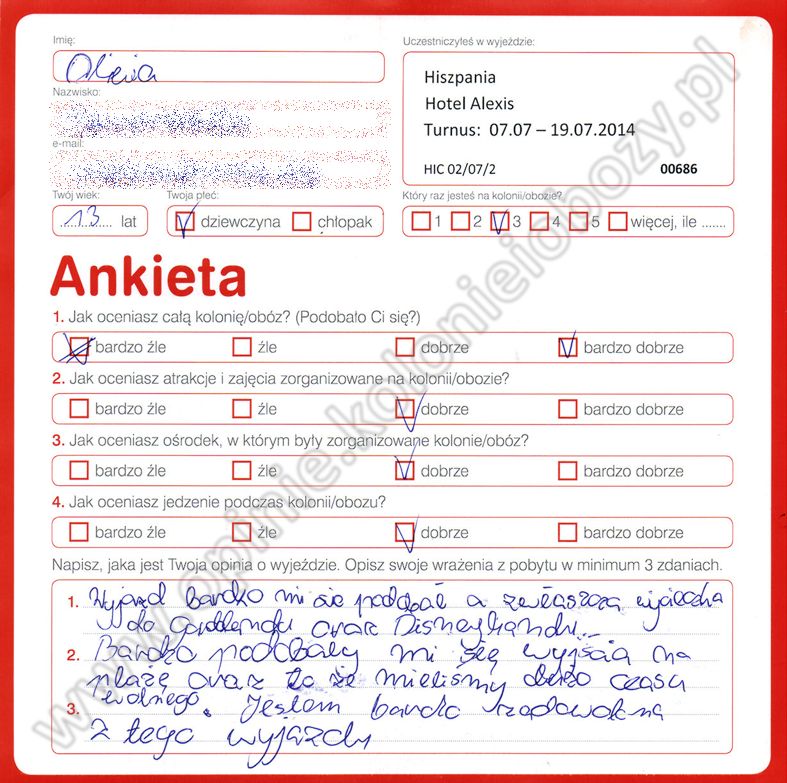 Imię:
Oliwia
Uczestniczyłeś w wyjeździe:
Hiszpania
Hotel Alexis
Turnus: 07.07 – 19.07.2014
HIC 02/07/2 00686
Nazwisko:
e-mail:
Twój wiek:
13 lat
Twoja płeć:
dziewczyna chłopak
Który raz jesteś na kolonii/obozie?
1 2 3 4 5 więcej, ile .......
Ankieta
1. Jak oceniasz całą kolonię/obóz? (Podobało Ci się?)
bardzo źle źle dobrze bardzo dobrze
2. Jak oceniasz atrakcje i zajęcia zorganizowane na kolonii/obozie?
bardzo źle źle dobrze bardzo dobrze
3. Jak oceniasz ośrodek, w którym były zorganizowane kolonie/obóz?
bardzo źle źle dobrze bardzo dobrze
4. Jak oceniasz jedzenie podczas kolonii/obozu?
bardzo źle źle dobrze bardzo dobrze
Napisz, jaka jest Twoja opinia o wyjeździe. Opisz swoje wrażenia z pobytu w minimum 3 zdaniach.
1. Wyjazd bardzo mi sie podobał a zwłaszcza wycieczka
do oraz Disneylandu.
2. Bardzo podobały mi się wyjścia na
plażę oraz to że mieliśmy dużo czasu
wolnego.
3. Jestem bardzo zadowolona
z tego wyjazdu
www.opinie.kolonieiobozy.pl